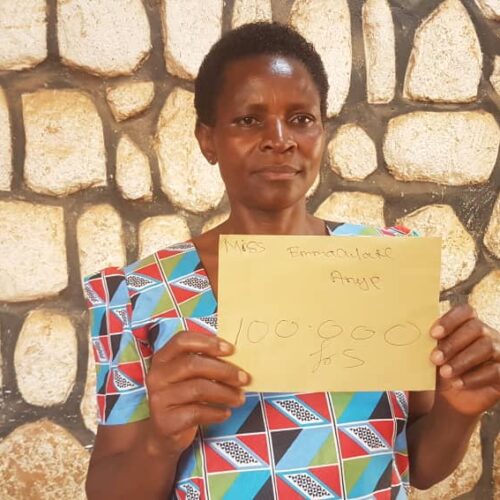 Miss Emmaculate
Anye
100.000
frs